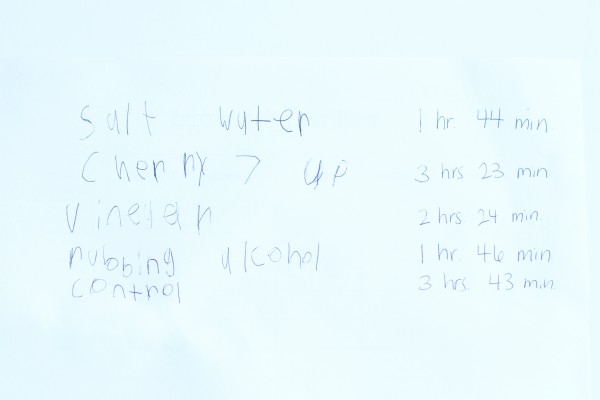 salt water 1 hr. 44 min
Cherry 7 up 3 hrs 23 min
vinegar 2 hrs 24 min.
rubbing alcohol 1 hr. 46 min
control 3 hrs. 43 min.